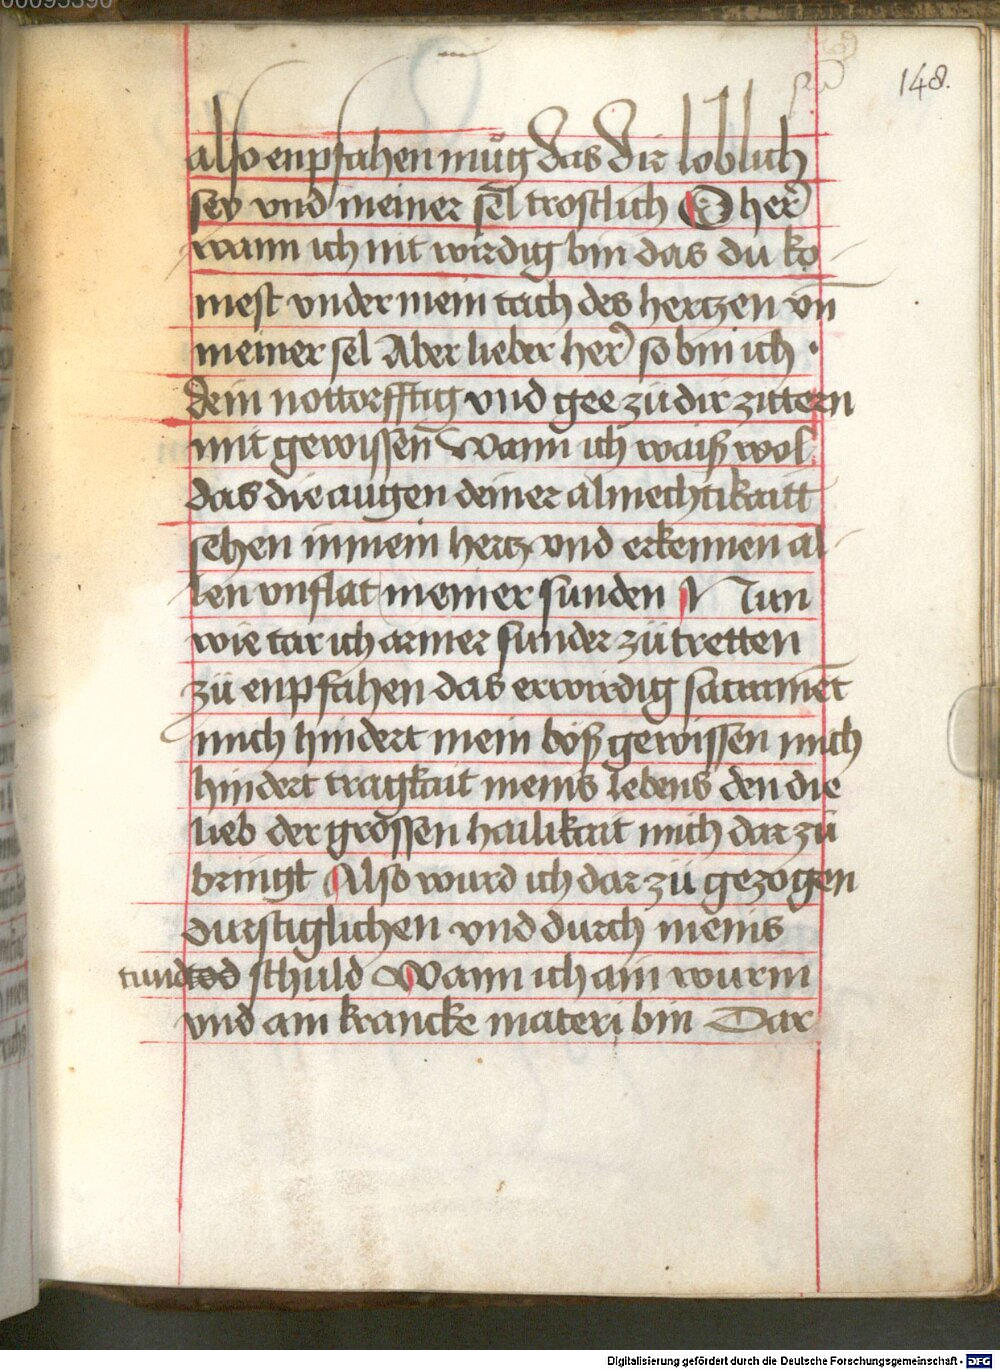 148.
also enpfahen müg das dir loblich
sey vnd meiner sel trostlich O her
wann ich nit wirdig bin das du ko
mest vnder mein tach des hertzen vn̄
meiner sel Aber lieber her so bin ich
dein nottorfftig vnd gee zü dir zittern
mit gewissen Wann ich waiß wol
das die augen deiner almechtikaitt
sehen in mein hertz vnd erkennen al
len vnflat meiner sunden Nun
wie tar ich armer sunder zü tretten
zü enpfahen das erwirdig sacramēt
mich hindert mein böß gewissen mich
hindert tragkait meins lebens den die
lieb der grossen hailikait mich dar zü
bringt Also wurd ich dar zü gezogen
durstiglichen vnd durch meins
tund tod schuld Wann ich ain wurm
vnd ain krancke materi bin Dar
Digitalisierung gefördert durch die Deutsche Forschungsgemeinschaft - DFG